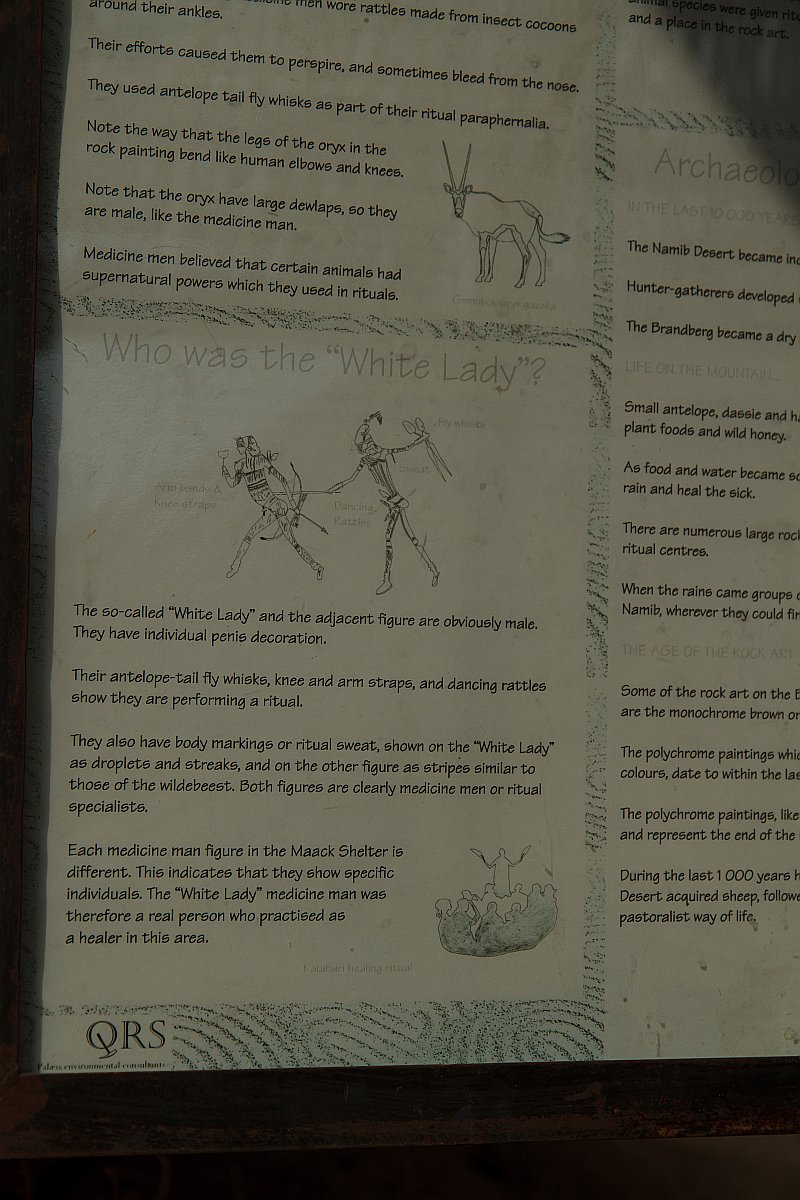 men wore rattles made from insect cocoons
around their ankles.
Their efforts caused them to perspire, and sometimes bleed from the nose.
They used antelope tail fly whisks as part of their ritual paraphernalia.
Note the way that the legs of the oryx in the
rock painting bend like human elbows and knees.
Note that the oryx have large dewlaps, so they
are male, like the medicine man.
Medicine men believed that certain animals had
supernatural powers which they used in rituals.
Gemsbok Oryx gazella
Who was the "White Lady"?
Fly whisks
Sweat
Arm bands &
Knee straps
Dancing
Rattles
The so-called "White Lady" and the adjacent figure are obviously male.
They have individual penis decoration.
Their antelope-tail fly whisks, knee and arm straps, and dancing rattles
show they are performing a ritual.
They also have body markings or ritual sweat, shown on the "White Lady"
as droplets and streaks, and on the other figure as stripes similar to
those of the wildebeest. Both figures are clearly medicine men or ritual
specialists.
Each medicine man figure in the Maack Shelter is
different. This indicates that they show specific
individuals. The "White Lady" medicine man was
therefore a real person who practised as
a healer in this area.
Kalahari healing ritual
QRS
Palaeo, environmental consultants
animal species were given
and a place in the rock art.
Archaeolo
IN THE LAST 10 000 YEARS
The Namib Desert became
Hunter-gatherers developed
The Brandberg became a dry
LIFE ON THE MOUNTAIN...
Small antelope, dassie and
plant foods and wild honey.
As food and water became
rain and heal the sick.
There are numerous large
ritual centres.
When the rains came groups
Namib, wherever they could
THE AGE OF THE ROCK ART
Some of the rock art on the
are the monochrome brown or
The polychrome paintings
colours, date to within the
The polychrome paintings, like
and represent the end of the
During the last 1 000 years
Desert acquired sheep,
pastoralist way of life.